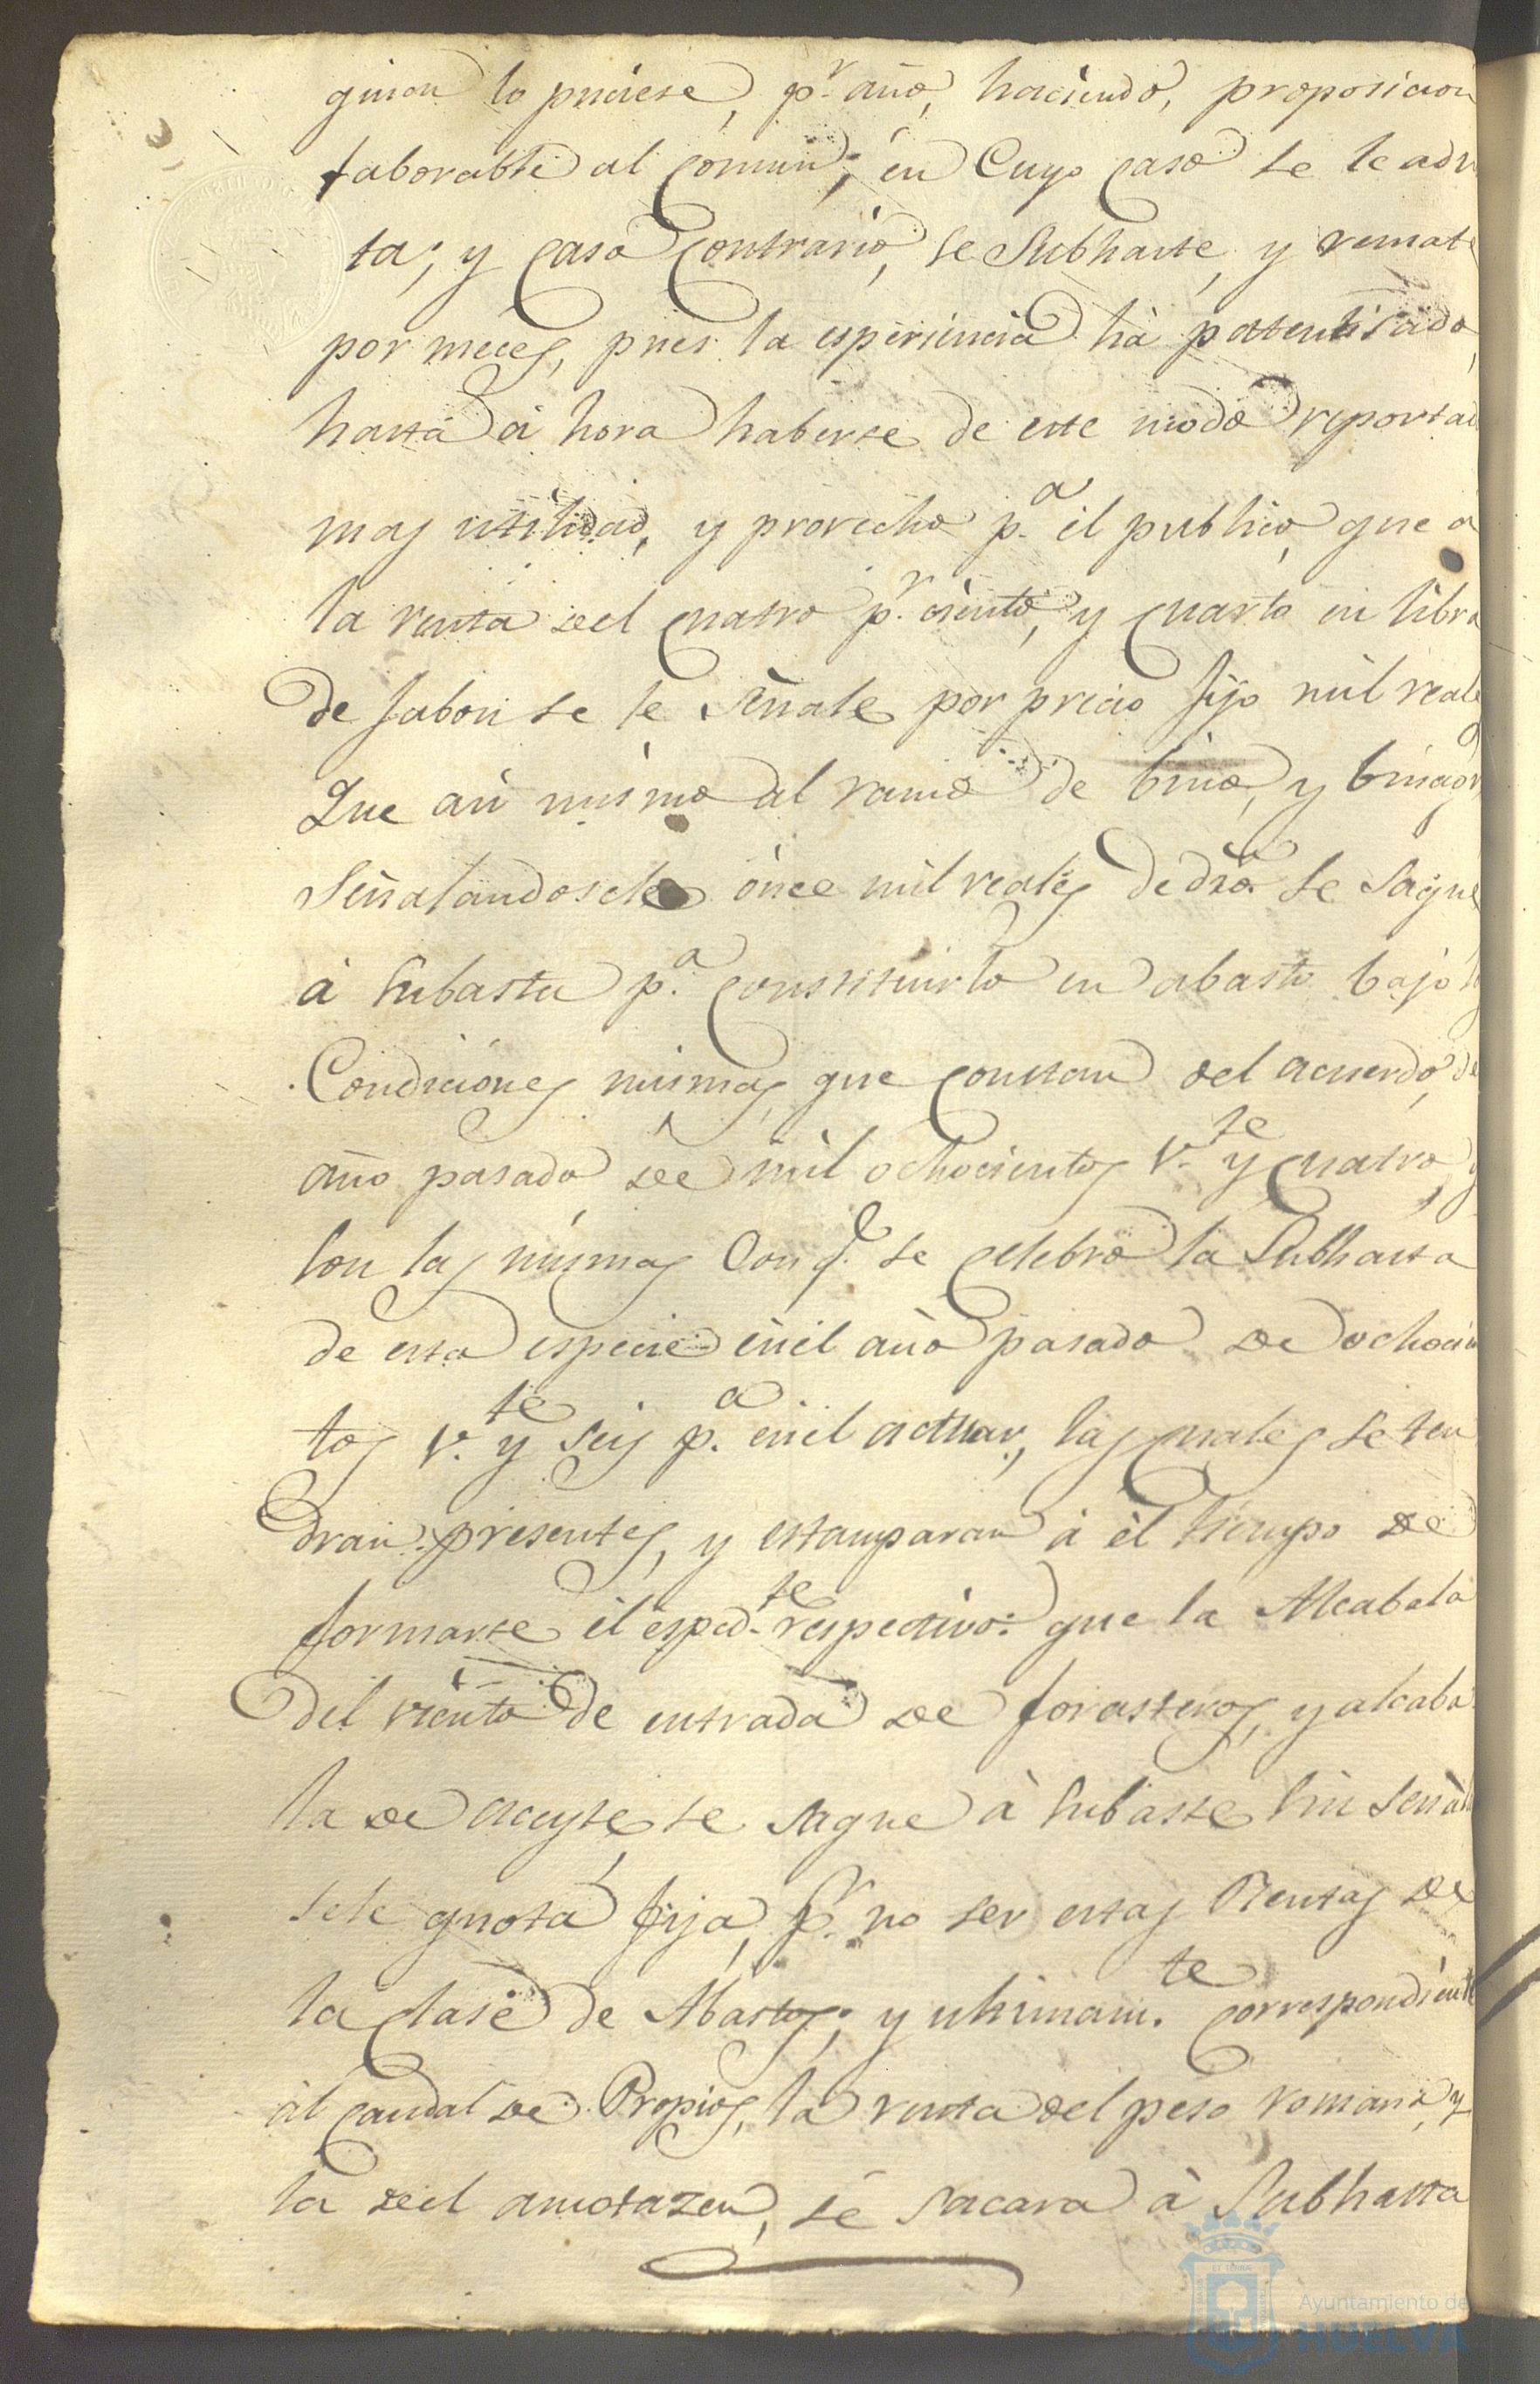 quien lo pusiese, p.r año, haciendo, proposicion
faborable al comun; en Cuyo caso se le admi
ta; y caso contrario, se Subhaste, y remate
por meces, pues la esperiencia hà patentisado,
hasta à hora haberse de este modo reportad
mas utilidad, y provecho p.a el publico, que à
la renta del quatro p.r ciento, y quarto en libra
de Jabon se le señale por precio fijo mil reales
Que asi mismo al ramo de bino, y binagre
Señalandosele once mil reales de dro. se saque
à Subasta p.a constituirlo en abasto bajo las
Condiciones mismas, que constan del acuerdo, de
año pasado de mil ochocientos v.te y quatro, y
son las mismas Con q.e se celebro la Subhasta
de esta especie en el año pasado de ochocien
tos v.te y seis p.a en el actuar, las quales se ten
dran presentes, y estamparan à el tiempo de
formarse el esped.te respectivo: que la Alcabala
del viento de entrada de forasteros, y alcaba
la de aceyte, se saque à Subaste sin señalar
sele quota fija, p.r no ser estas Rentas de
la clase de Abastos; y ultimam.te correspondiente
al caudal de Propios, la renta del peso romana, y
la del amotazen, se sacara à Subhasta
Ayuntamiento de
HUELVA